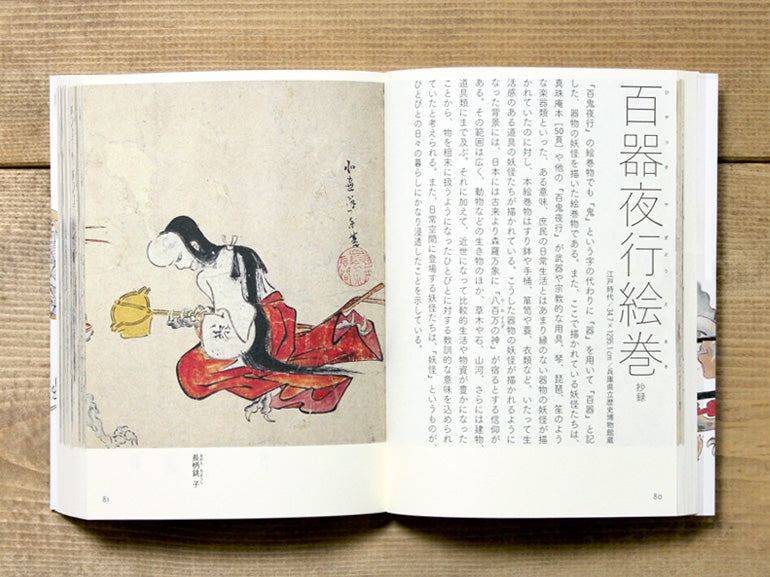 百器夜行絵巻
ひゃっきやぎょうえまき
抄録
江戸時代／34.7×1295.1cm／兵庫県立歴史博物館蔵
「百鬼夜行」の絵巻物でも「鬼」という字の代わりに「器」を用いて「百器」と記
した、器物の妖怪を描いた絵巻物である。また、ここで描かれている妖怪たちは、
真珠庵本［50頁］や他の「百鬼夜行」が武器や宗教的な用具、琴、琵琶、笙のよう
な楽器類といった、ある意味、庶民の日常生活とはあまり縁のない器物の妖怪が描
かれていたのに対し、本絵巻物はすり鉢や手桶、簞笥や蓑、衣類など、いたって生
活感のある道具の妖怪たちが描かれている。こうした器物の妖怪が描かれるように
なった背景には、日本には古来より森羅万象に「八百万の神」が宿るとする信仰が
ある。その範囲は広く、動物などの生き物のほか、草木や石、山河、さらには建物、
道具類にまで及ぶ。それに加えて、近世になって比較的生活や物資が豊かになった
ことから、物を粗末に扱うようになったひとびとに対する教訓的な意味を込められ
ていたと考えられる。また、日常空間に登場する妖怪たちは、「妖怪」というものが、
ひとびとの日々の暮らしにかなり浸透したことを示している。
80
長柄銚子
81